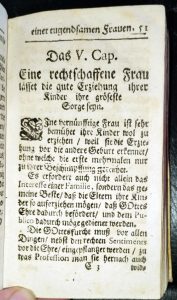 einer tugendsamen Frauen. 51
Das V. Cap.
Eine rechtschaffene Frau
lässet die gute Erziehung ihrer
Kinder ihre grösseste
Sorge seyn.
EIne vernünfftige Frau ist sehr
bemühet ihre Kinder wol zu
erziehen / weil sie die Erzie-
hung vor die andere Geburt erkennet /
ohne welche die erste mehrmalen nur
zu ihrer Beschimpffung gereichet.
Es erfordert auch nicht allein das
Interesse einer Familie, sondern das ge-
meine Beste / daß die Eltern ihre Kin-
der so auferziehen mögen / daß GOttes
Ehre dadurch befördert / und dem Pu-
blico dadurch mögegedienet werden.
Die GOttesfurcht muß vor allen
Dingen / nebst den rechten Sentiments
vor die Ehre / eingepflanzet werden / zu
was Profession man sie hernach auch
wid-